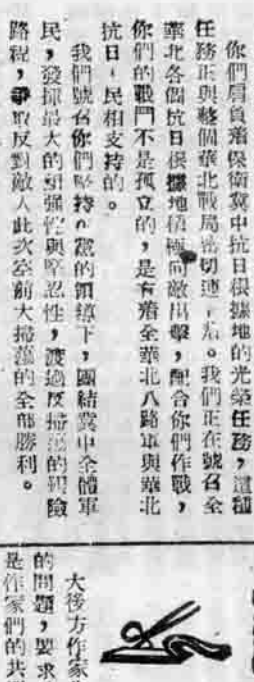 你們肩負着保衛冀中抗日根據地的光榮任務，這種
任務正與整個華北戰局密切連着。我們正在號召全
華北各個抗日根據地積極向敵出擊，配合你們作戰，
你們的戰鬥不是孤立的，是有着全華北八路軍與華北
抗日人民相支持的。
我們號召你們堅持在黨的領導下，團結冀中全體軍
民，發揮最大的頑強性與堅忍性，渡過反掃蕩的艱險
路程，爭取反對敵人此次空前大掃蕩的全部勝利。
大後方作家
的問題，要求
是作家們的共